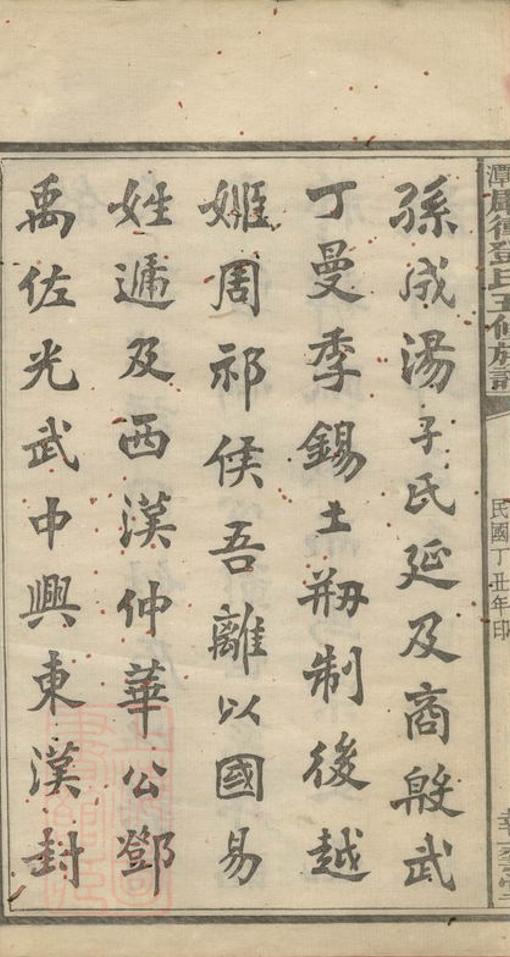 潭
衡鄧氏五修族譜
民國丁丑年印
孫成湯子氏延及商殷武
丁曼季錫土剏制後越
姬周祁侯吾離以國易
姓遞及西漢仲華公鄧
禹佐光武中興東漢封